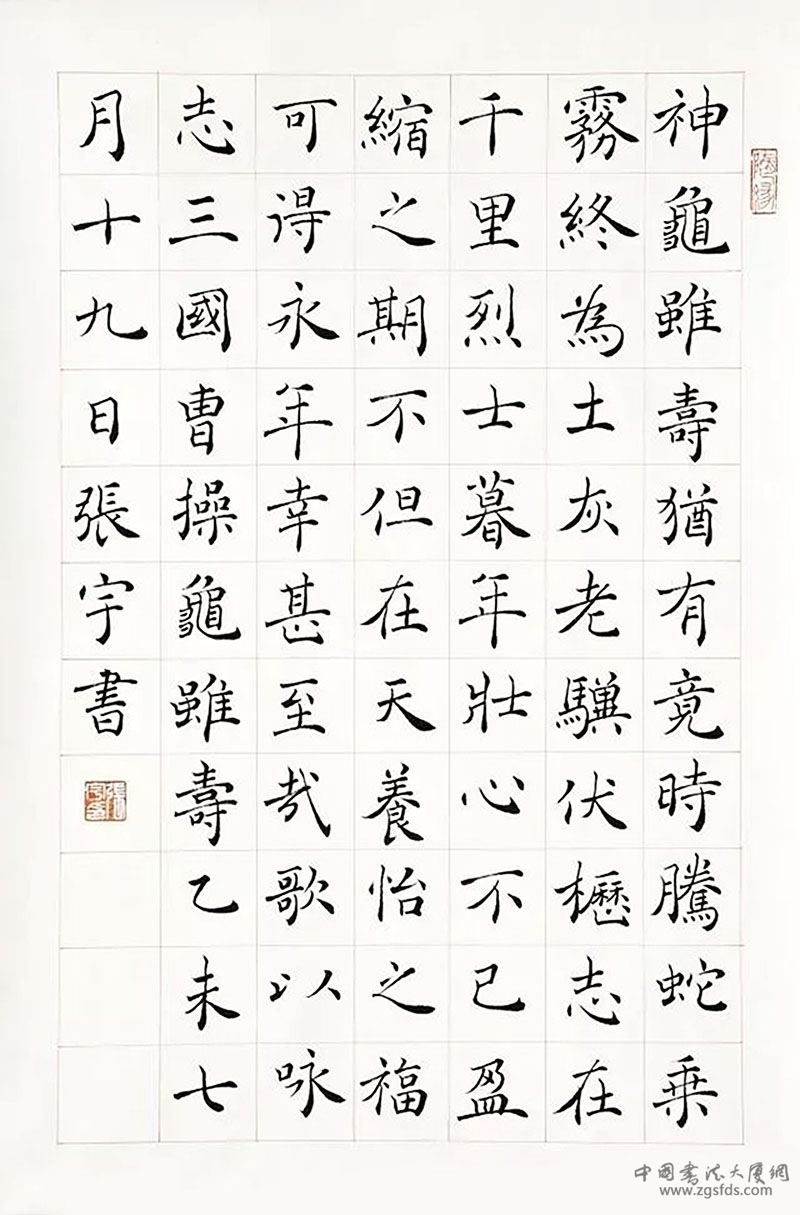 神龜雖壽猶有竟時騰蛇乗
霧終為土灰老驥伏櫪志在
千里烈士暮年壯心不已盈
縮之期不但在天養怡之福
可得永年幸甚至哉歌以咏
志三國曹操龜雖壽乙未七
月十九日張宇書
中国书法大厦網
www.zgsfds.com